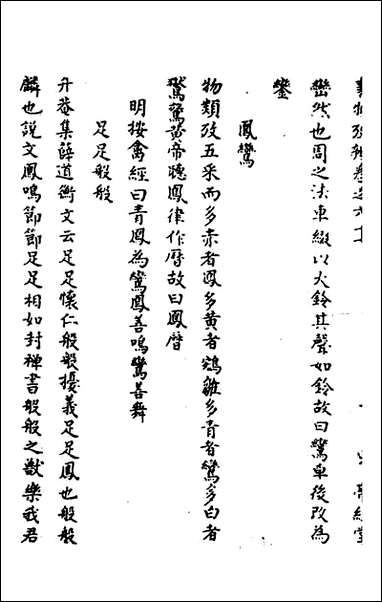 事物攷辨卷之六十
鸞然也周之法車綴以大鈴其聲如鈴故曰鸞車後改為
鑾
鳳鸞
物類攷五采而多赤者鳳多黃者鵷雛多青者鸞多白者
鸑鷟黃帝聽鳳律作曆故曰鳳曆
明按禽經曰青鳳為鸞鳳善鳴鸞善舞
足足般般
升菴集薛道衡文云足足懷仁般般擾義足足鳳也般般
麟也說文鳳鳴節節足足相如封禪書般般之獸樂我君